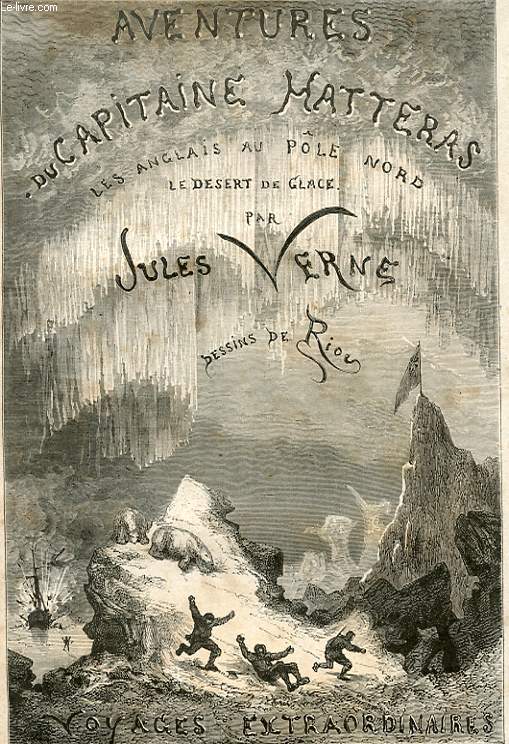 Le-livre.com
AVENTURES
DU CAPITAINE HATTERAS
LES ANGLAIS AU PÔLE NORD
LE DESERT DE GLACE.
PAR
JULES VERNE
DESSINS DE RIOU
VOYAGES EXTRAORDINAIRES